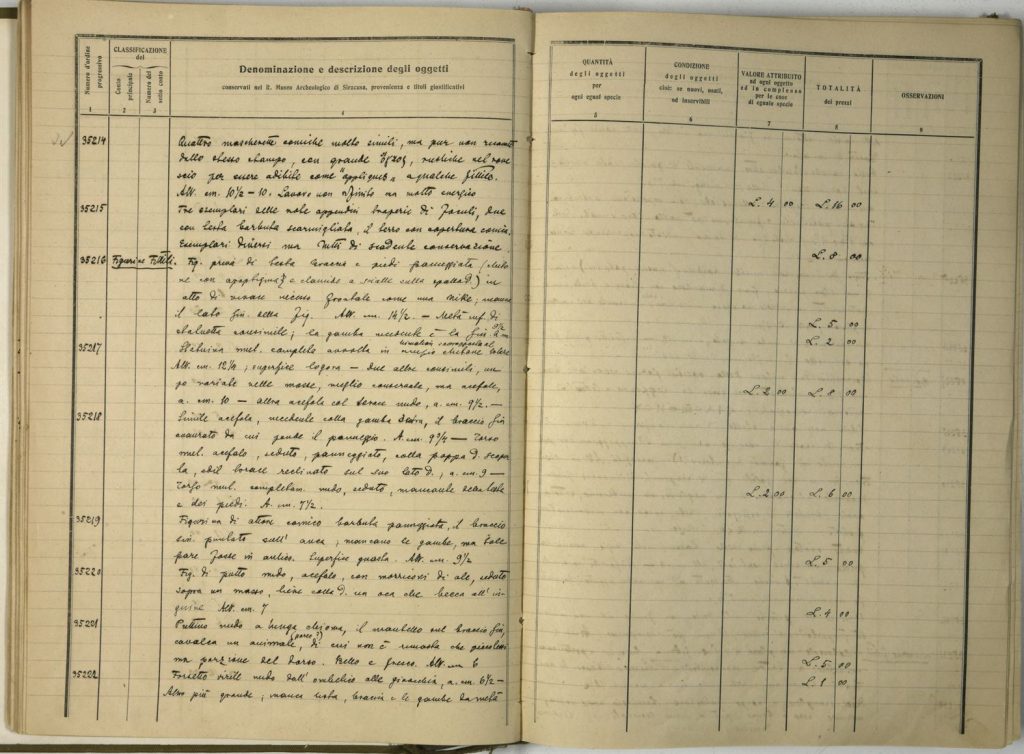 Numero d'ordine progressivo
CLASSIFICAZIONE del
Conto principale
Numero del sotto conto
Denominazione e descrizione degli oggetti
conservati nel R. Museo Archeologico di Siracusa, provenienza e titoli giustificativi
1 2 3 4
QUANTITÀ degli oggetti per ogni egual specie
CONDIZIONE degli oggetti cioè: se nuovi, usati, od inservibili
VALORE ATTRIBUITO ad ogni oggetto od in complesso per le cose di eguale specie
TOTALITÀ dei prezzi
OSSERVAZIONI
5 6 7 8 9
35214 Quattro mascherette comiche molto simili, ma pur non
dello stesso stampo, con grande rustiche nel rove
scio per essere adibite come "appliques" a qualche fittile.
Alt. cm. 10½ - 10. Lavoro non finito ma molto energico L. 4 00 L. 16 00
35215 Tre esemplari delle note appendici di due
con testa barbuta scarmigliata, il terzo con copertura conica.
Esemplari diversi ma tutti di scadente conservazione.
L. 8 00
35216 Figurine Fittili. Fig. priva di testa braccia e piedi panneggiata
ne con e clamide a scialle sulla spalla d.) in
atto di vivace incesso frontale come una Nike; manca
il lato sin. della fig. Alt. cm. 14½ - Metà inf. di
statuetta consimile; la gamba incedente è la sin. L. 5. 00
35217 Statuina mul. completa avvolta in L. 2 00
Alt. cm. 12¼; superfice logora - due altre consimili, un
po variate nelle mosse, meglio conservate, ma acefale,
a. cm. 10 - altra acefala col torace nudo, a. cm. 9½. - L. 2 00 L. 8 00
35218 Simile acefala, incedente colla gamba destra, il braccio sin
da cui pende il panneggio. A. cm. 9¾ - Torso
mul. acefalo, seduto, panneggiato, colla poppa d. scoper
ta, e col torace reclinato sul suo lato d., a. cm. 9 -
Torso mul. completam. nudo, seduto, mancante della testa
e dei piedi. A. cm. 7½. L. 2 00 L. 6 00
35219 Figurina di attore comico barbuto panneggiato, il braccio
sin. puntato sull' anca; mancano le gambe, ma tale
pare fosse in antico. Superfice guasta. Alt. cm. 9½ L. 5. 00
35220 Fig. di putto nudo, acefalo, con di ale, seduto
sopra un masso, tiene colla d. un oca che becca all' in
guine Alt. cm. 7 L. 4 00
35201 Puttino nudo a lunga chioma, il mantello sul braccio sin,
cavalca un animale (porco?), di cui non è rimasta che
ma porzione del dorso. Bello e fresco. Alt. cm 6 L. 5 00
35222 Torsetto virile nudo dall' ombelico alle ginocchia, a. cm. 6½ - L. 1 00
Altro più grande; manca testa, braccia e le gambe da metà